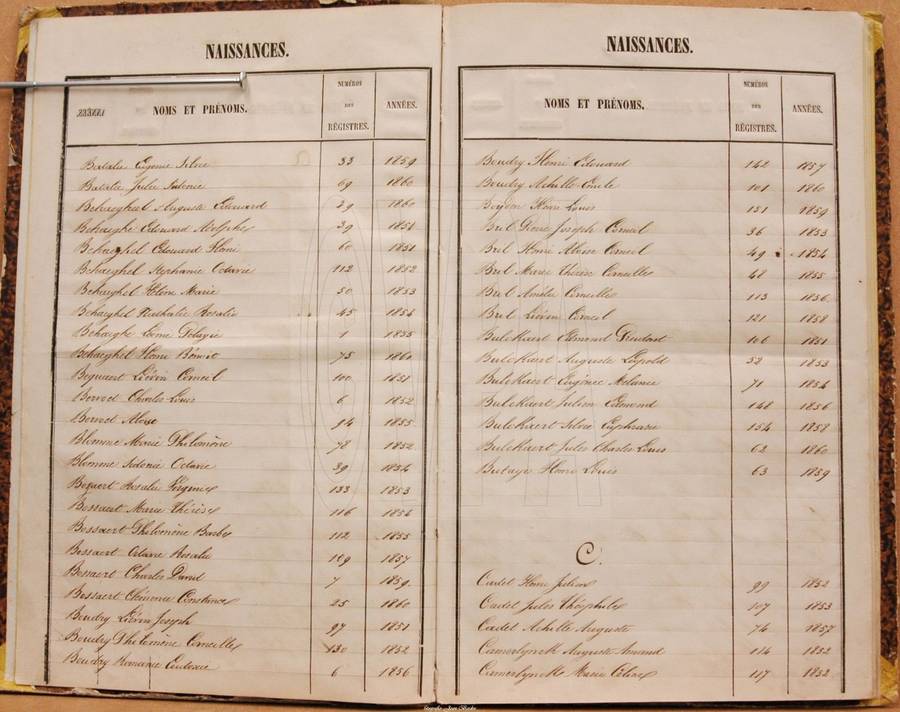 NAISSANCES.
NOMS ET PRÉNOMS. NUMÉROS DES RÉGISTRES. ANNÉES.
Batalie Eugenie Silvie 33 1859
Batalie Julie Sidonie 69 1860
Behaeghel Auguste Edouard 29 1860
Behaeghe Edouard Adolphe 39 1851
Behaeghel Edouard Henri 60 1851
Behaeghel Stephanie Octavie 112 1852
Behaeghel Hélène Marie 50 1853
Behaeghel Nathalie Rosalie 45 1854
Behaeghe Leonie Pélagie 1 1855
Behaeghel Henri Benoit 75 1860
Liévin Corneil 100 1851
Charles Louis 6 1852
Aloise 94 1855
Blomme Marie Philomène 78 1852
Blomme Sidonie Octavie 39 1854
Rosalie 133 1853
Bossaert Marie Thérèse 116 1854
Bossaert Philomène Barbe 112 1855
Bossaert Octavie Rosalie 109 1857
Bossaert Charles David 7 1859
Bossaert Clémence Constance 25 1860
Boudry Liévin Joseph 97 1851
Boudry Philomène Corneille 130 1852
Boudry Romanie 6 1856
NAISSANCES.
NOMS ET PRÉNOMS. NUMÉROS DES RÉGISTRES. ANNÉES.
Boudry Henri Edouard 142 1857
Boudry Achille Emile 101 1860
Henri Louis 131 1859
Bril Pierre Joseph Corneil 36 1853
Bril Henri Aloise Corneil 49 1854
Bril Marie Thérèse Corneille 48 1855
Bril Amélie Corneille 113 1856
Bril Liévin Corneil 121 1858
Bulckaert Edmond Dieudoné 106 1851
Bulckaert Auguste Léopold 52 1853
Bulckaert Eugénie Mélanie 71 1854
Bulckaert Julien Edmond 148 1856
Bulckaert Silvie Euphrasie 154 1858
Bulckaert Jules Charles Louis 62 1860
Butaye Henri Louis 63 1859
C.
Cadet Henri Julien 99 1852
Cadet Jules Théophile 107 1853
Cadet Achille Auguste 74 1857
Camerlynck Auguste Amand 114 1852
Camerlynck Marie Céline 117 1852